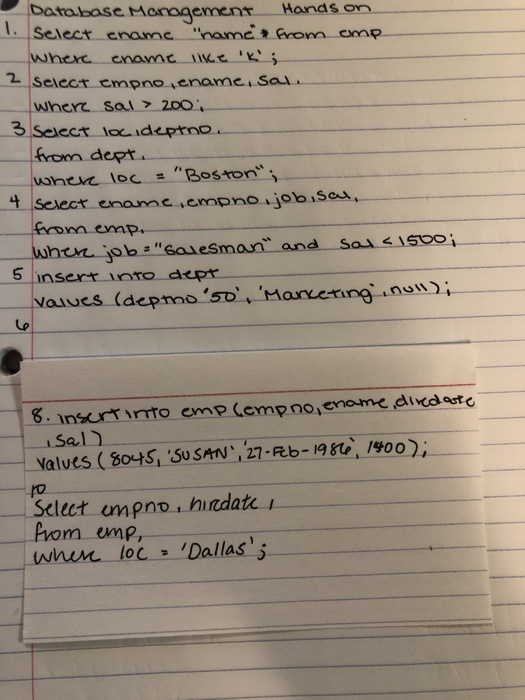 Database Management Hands on
1. Select ename "name" * from emp
where ename like 'K';
2 Select empno, ename, sal.
where sal > 200;
3 Select loc, deptno.
from dept.
where loc = "Boston";
4 Select ename, empno, job, sal,
from emp.
where job = "Salesman" and sal < 1500;
5 insert into dept
values (deptno '50', 'Marketing', null);
6
8. insert into emp (empno, ename, diredate
, sal)
values (8045, 'SUSAN', '27-Feb-1986', 1400);
10
Select empno, hiredate,
from emp,
where loc = 'Dallas';